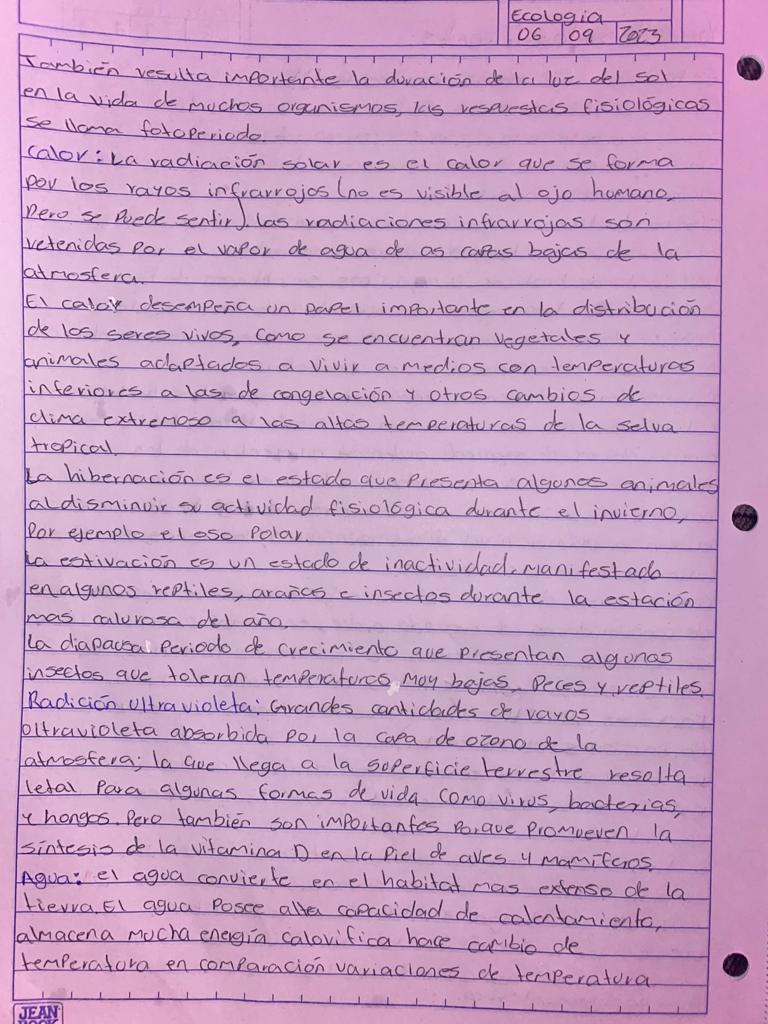 Ecologia
06 09 2023
También resulta importante la duración de la luz del sol
en la vida de muchos organismos, las respuestas fisiológicas
se llama fotoperiodo.
Calor: La radiación solar es el calor que se forma
por los rayos infrarrojos (no es visible al ojo humano,
pero se puede sentir). las radiaciones infrarrojas son
retenidas por el vapor de agua de as capas bajas de la
atmosfera.
El calor desempeña un papel importante en la distribución
de los seres vivos, como se encuentran vegetales y
animales adaptados a vivir a medios con temperaturas
inferiores a las de congelación y otros cambios de
clima extremoso a las altas temperaturas de la selva
tropical.
La hibernación es el estado que presenta algunos animales
al disminuir su actividad fisiológica durante el invierno,
Por ejemplo el oso Polar.
La estivación es un estado de inactividad. manifestado
en algunos reptiles, arañas e insectos durante la estación
mas calurosa del año.
La diapausa: Periodo de crecimiento que presentan algunas
insectos que toleran temperaturas muy bajas, Peces y reptiles.
Radición ultravioleta: Grandes cantidades de rayos
ultravioleta absorbida por la capa de ozono de la
atmosfera; la que llega a la superficie terrestre resulta
letal Para algunas formas de vida como virus, bacterias,
y hongos. Pero también son importantes Porque promueven la
síntesis de la vitamina D en la Piel de aves y mamíferos.
Agua: el agua convierte en el habitat mas extenso de la
tierra. El agua Posee alta capacidad de calentamiento,
almacena mucha energía calorifica hace cambio de
temperatura en comparación variaciones de temperatura
JEAN
BOOK